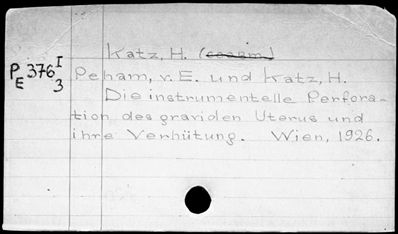 Katz, H.
P 376 I
E 3
Peham, v. E. und Katz, H.
Die instrumentelle Perfora-
tion des graviden Uterus und
ihre Verhütung. Wien, 1926.